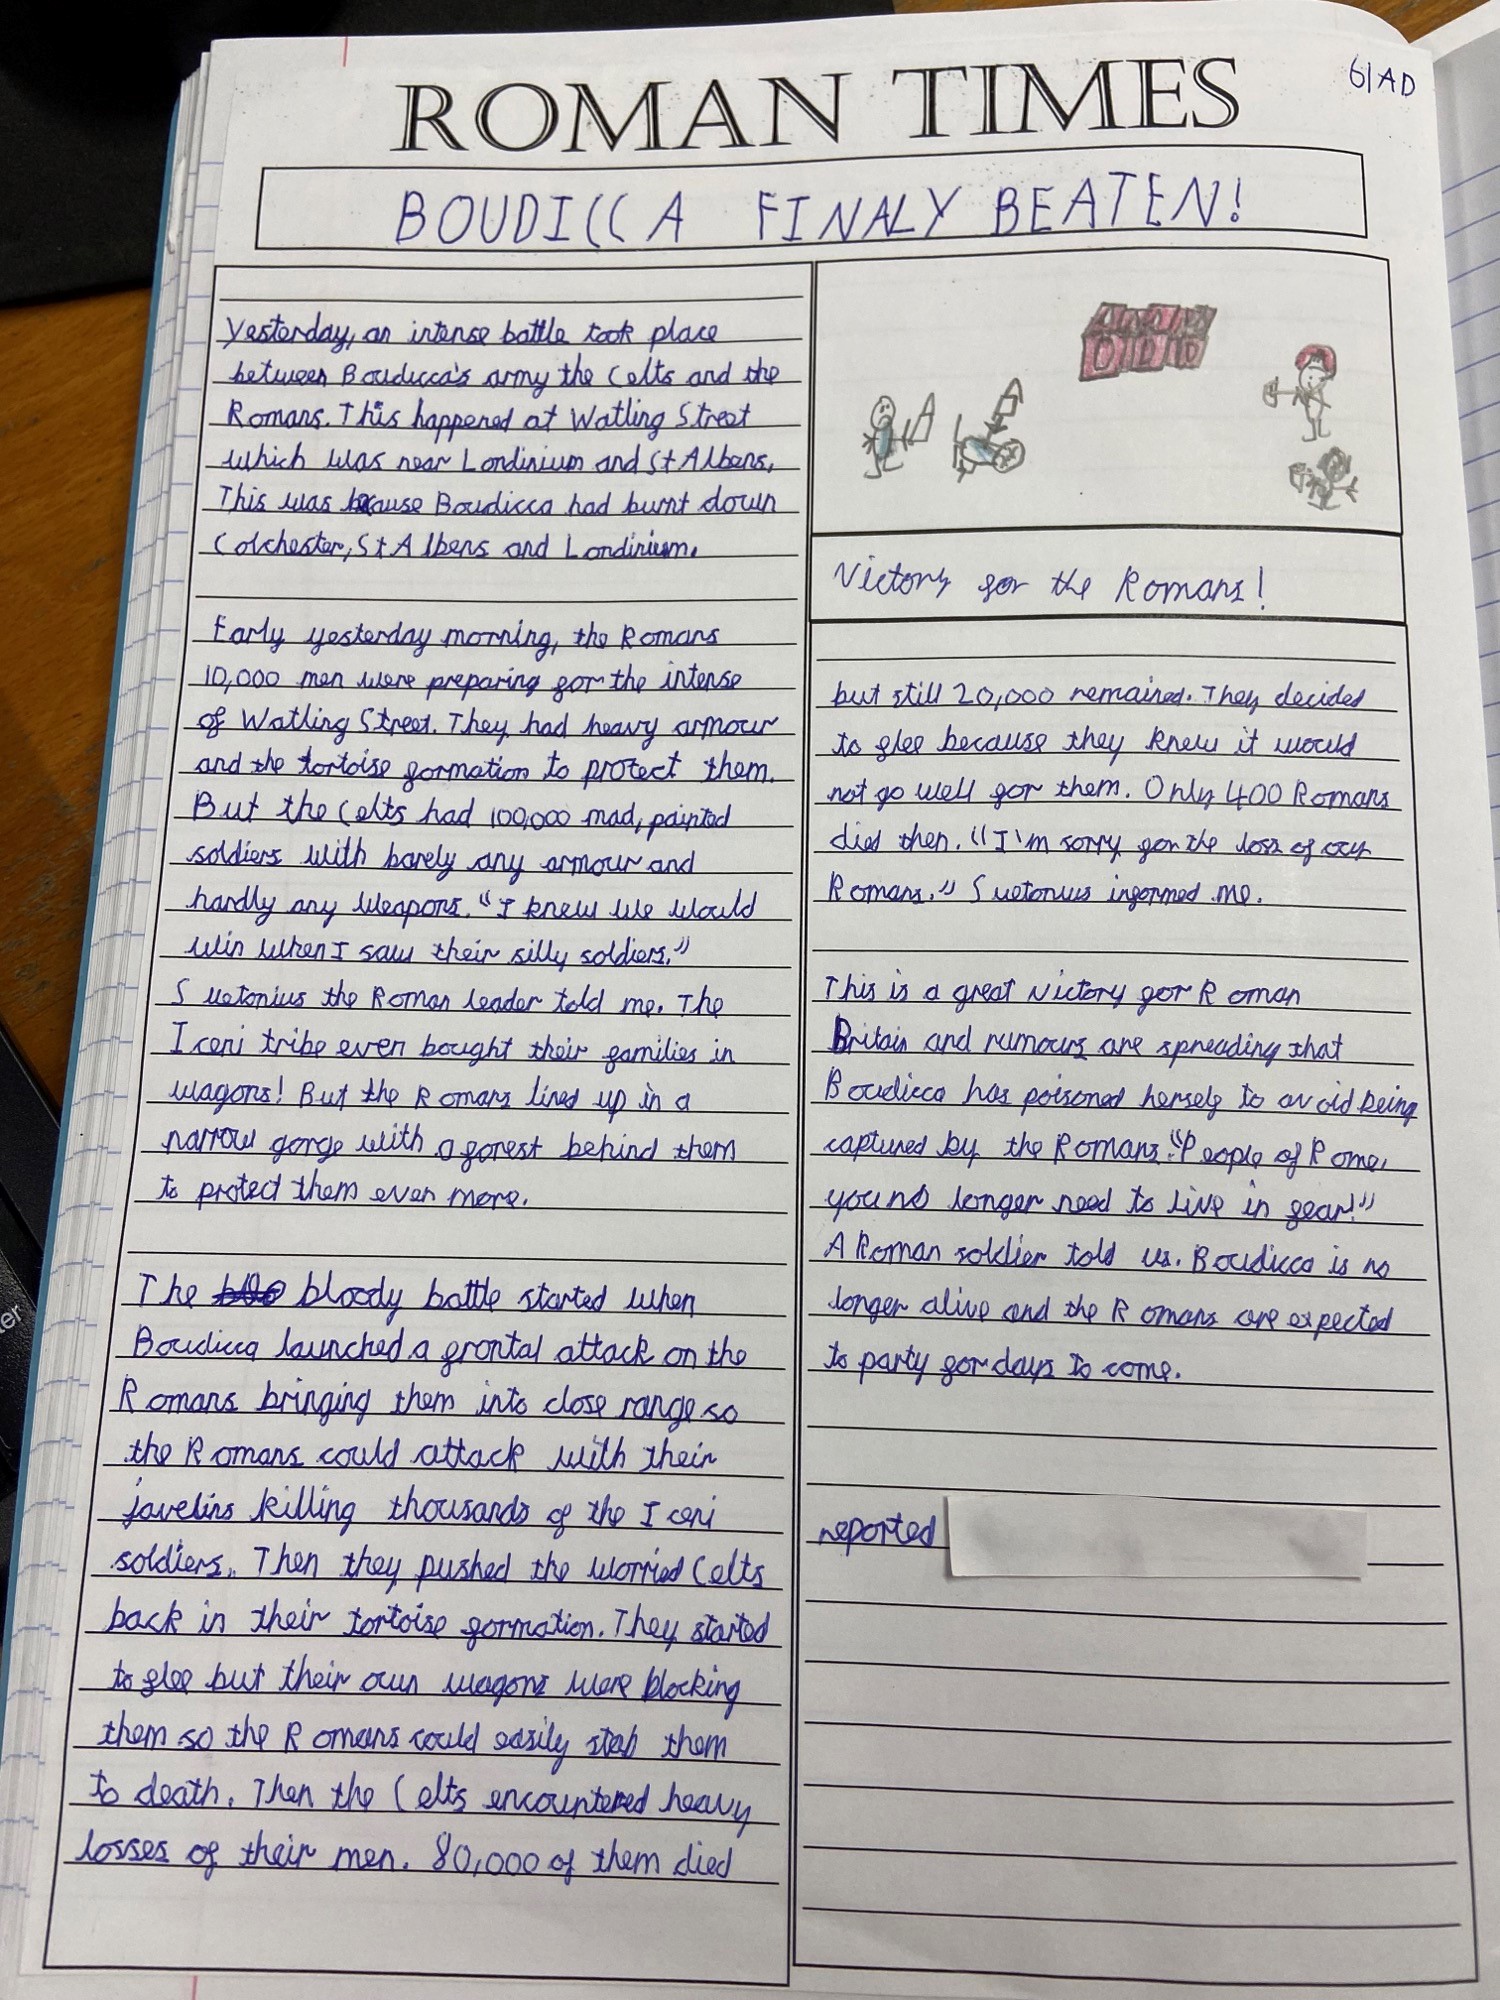 61AD
ROMAN TIMES
BOUDICCA FINALY BEATEN!
Yesterday, an intense battle took place
between Boudicca's army the Celts and the
Romans. This happened at Watling Street
which was near Londinium and St Albens,
This was because Boudicca had burnt down
Colchester, St Albens and Londinium.
Early yesterday morning, the Romans
10,000 men were preparing for the intense
of Watling Street. They had heavy armour
and the tortoise formation to protect them.
But the Celts had 100,000 mad, painted
soldiers with barely any armour and
hardly any weapons. "I knew we would
win when I saw their silly soldiers."
Suetonius the Roman leader told me. The
Iceni tribe even bought their families in
wagons! But the Romans lined up in a
narrow gorge with a forest behind them
to protect them even more.
The bloody battle started when
Boudicca launched a frontal attack on the
Romans bringing them into close range so
the Romans could attack with their
javelins killing thousands of the Iceni
soldiers. Then they pushed the worried Celts
back in their tortoise formation. They started
to flee but their own wagons were blocking
them so the Romans could easily stab them
to death. Then the Celts encountered heavy
losses of their men. 80,000 of them died
Victory for the Romans!
but still 20,000 remained. They decided
to flee because they knew it would
not go well for them. Only 400 Romans
died then. "I'm sorry for the loss of our
Romans." Suetonius informed me.
This is a great victory for Roman
Britain and rumours are spreading that
Boudicca has poisoned herself to avoid being
captured by the Romans. "People of Rome,
you no longer need to live in fear!"
A Roman soldier told us. Boudicca is no
longer alive and the Romans are expected
to party for days to come.
reported